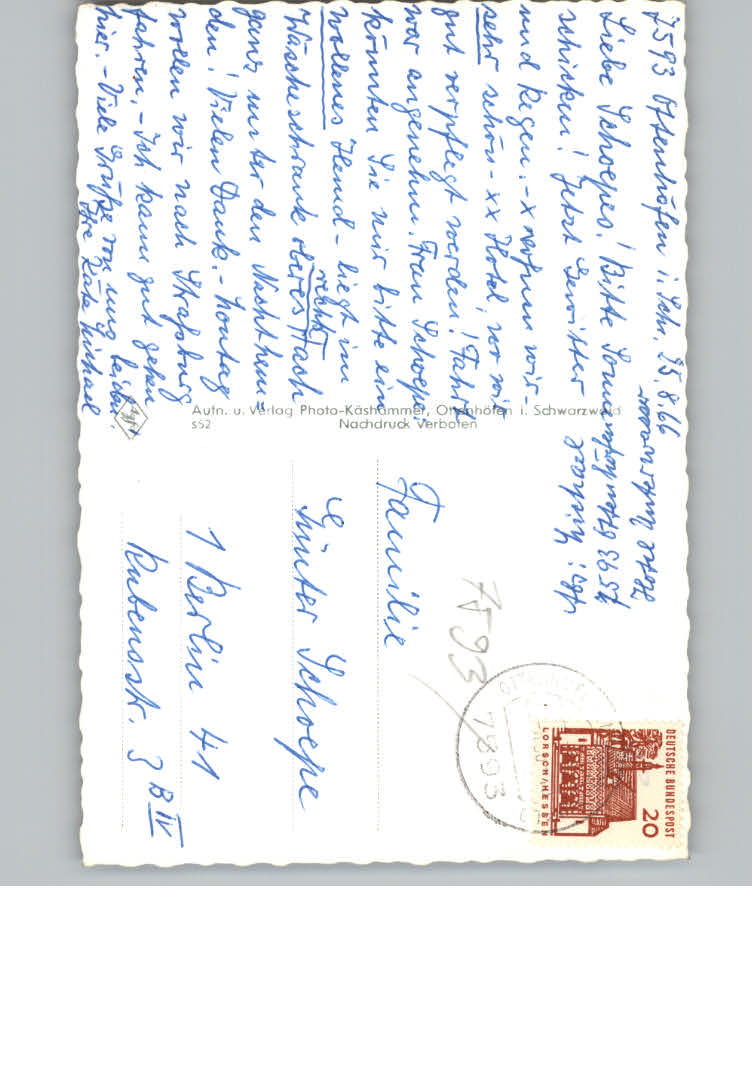 7593 Ottenhöfen i. Schw. 25.8.66
Liebe Schoepes! Bitte Sonne
schicken! Jetzt Gewitter
und Regen. - x wohnen wir -
sehr schön - xx Hotel, wo wir
gut verpflegt werden! Fahrt
war angenehm. Frau Schoepe,
könnten Sie mir bitte ein
wollenes Hemd - liegt im
Wäscheschrank oberes Fach
rechts
ganz unter den Nachthem=
den! Vielen Dank. - Montag
wollen wir nach Straßburg
fahren. - Ich kann gut gehen
hier. - Viele Grüße von uns beiden.
Ihre Käte
7593 Ottenhöfen
Aufn. u. Verlag Photo-Käshammer, Ottenhöfen i. Schwarzwald
S52
Nachdruck verboten
Familie
Günter Schoepe
1 Berlin 41
Rubensstr. 3 B IV
7593
7593
DEUTSCHE BUNDESPOST
20
LORSCH/HESSEN